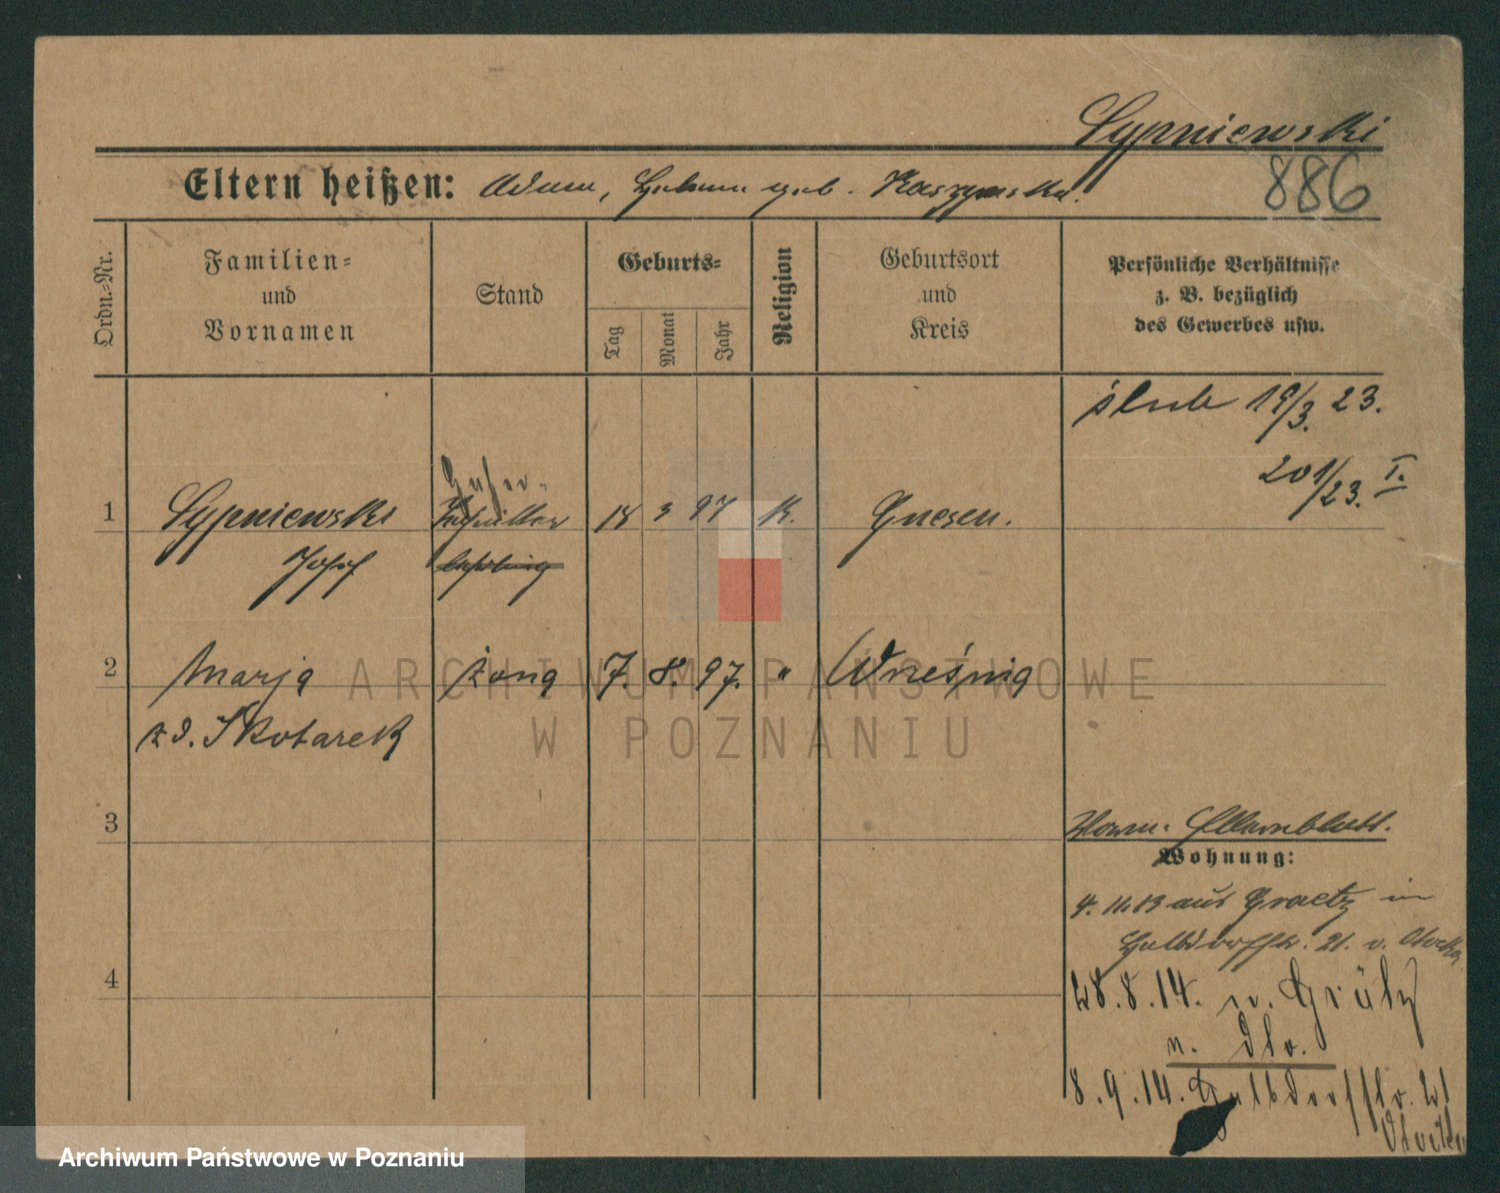 Sypniewski
886
Eltern heißen: Adam, geb. Kaszynska.
Ordn.-Nr.
Familien-
und
Vornamen
Stand
Geburts-
Tag
Monat
Jahr
Religion
Geburtsort
und
Kreis
Persönliche Verhältnisse
z. B. bezüglich
des Gewerbes usw.
ślub 19/3. 23.
201/23. I.
1 Sypniewski 18 3 97 K. Gnesen.
Josef
2 Marja żona 7. 8. 97. " Wrześnią
z d. Skotarek
3
Elternblatt.
Wohnung:
4. 11.13 aus Graetz in
Halbdorfstr. 21. v.
4
28.8.14. n. Grätz
8.9.14. Halbdorfstr. 21
ARCHIWUM PAŃSTWOWE
W POZNANIU
Archiwum Państwowe w Poznaniu